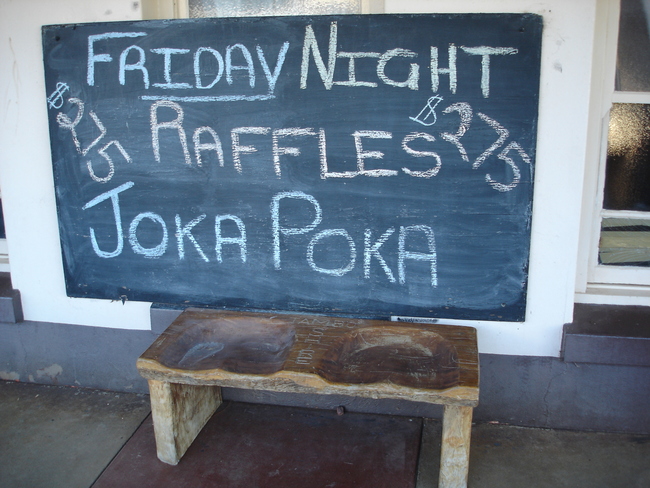 FRIDAY NIGHT
$275 RAFFLES $275
JOKA POKA